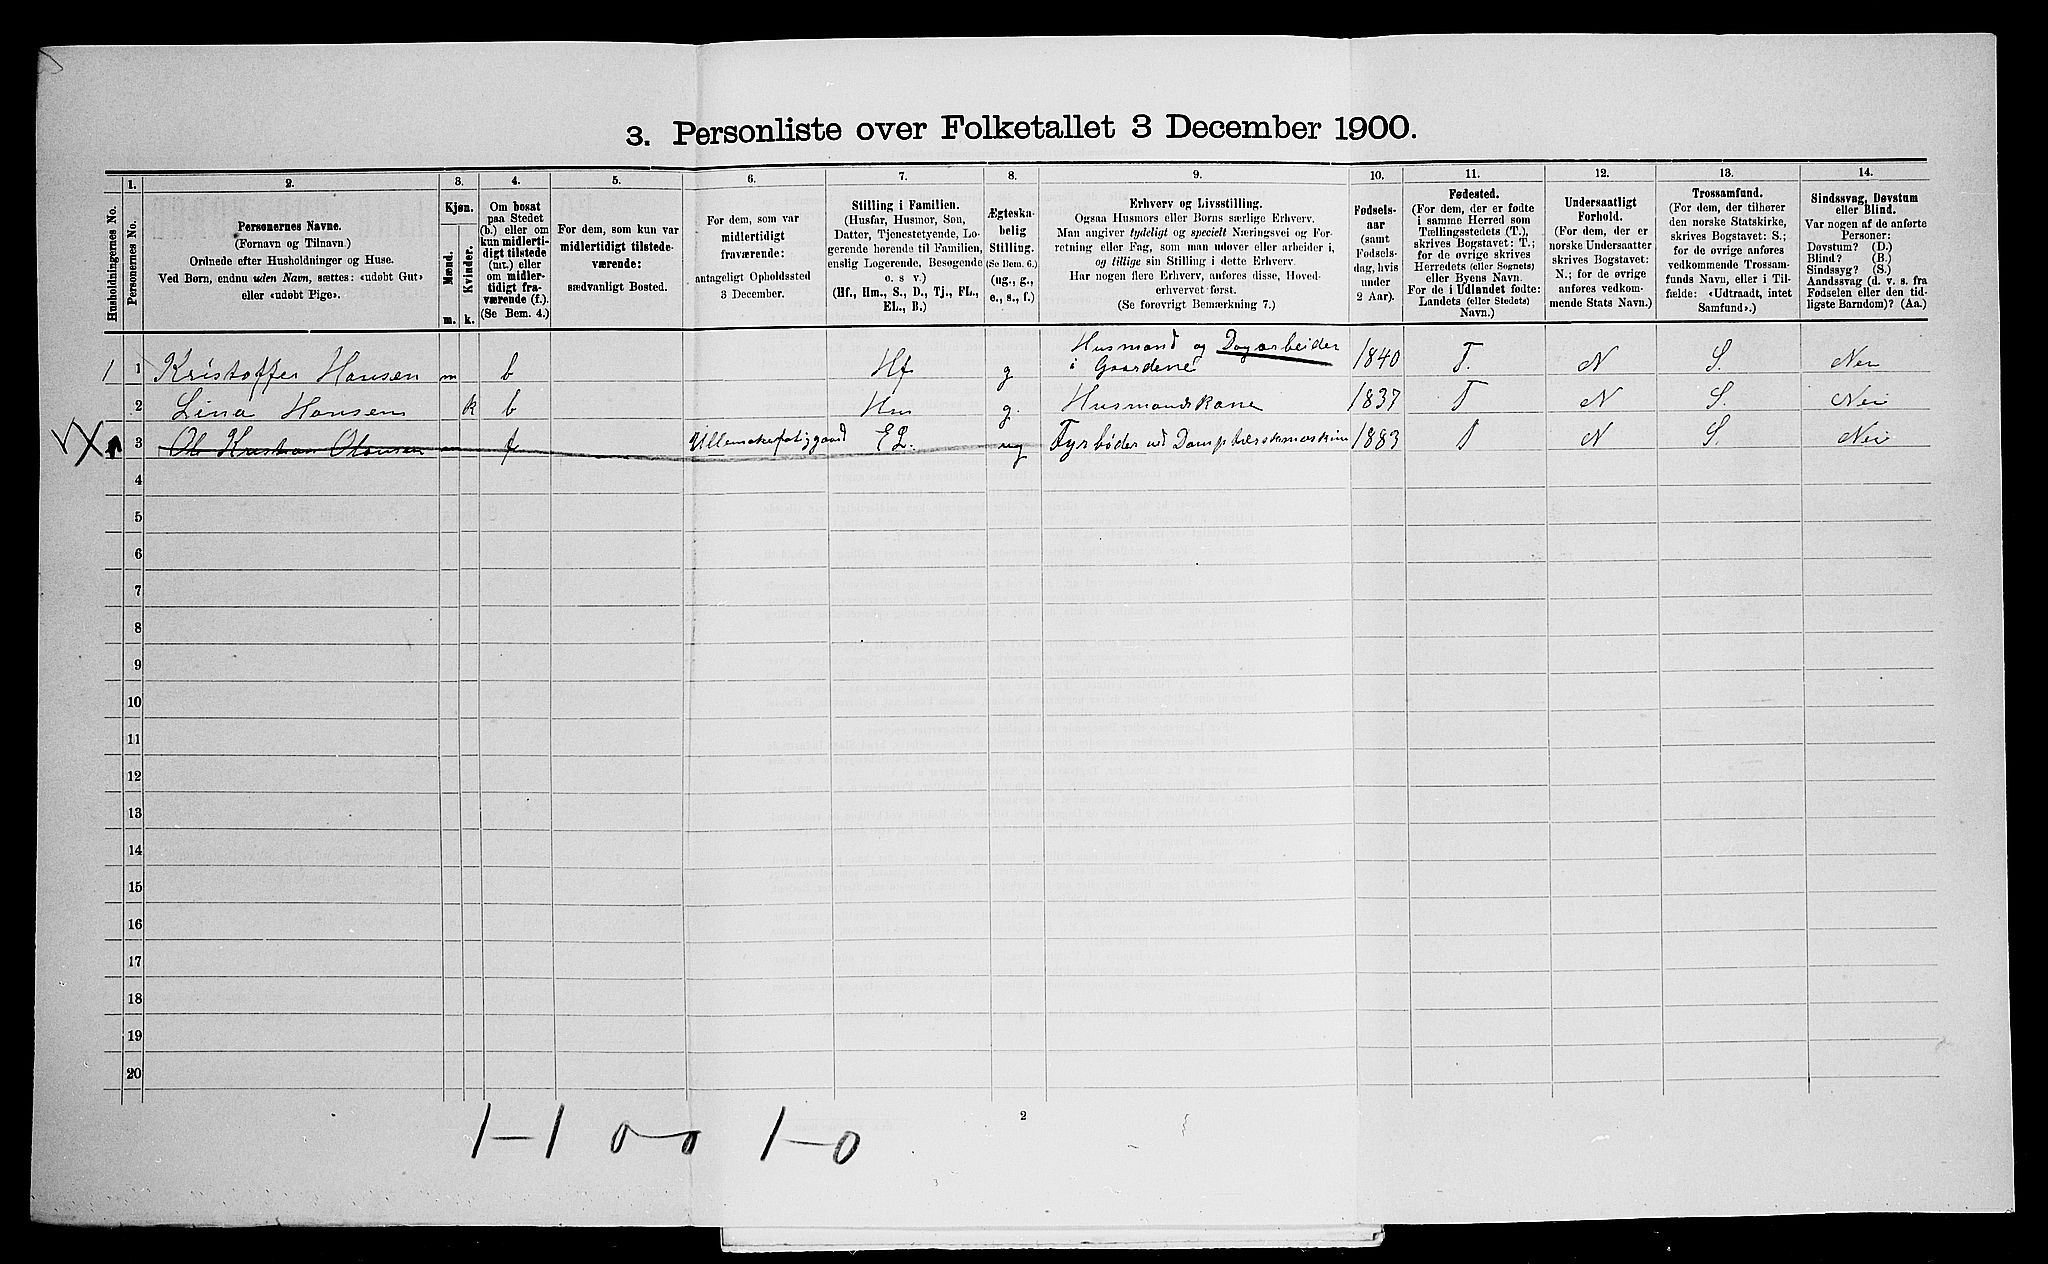 3. Personliste over Folketallet 3 December 1900.
1. 2. 3. 4. 5. 6. 7. 8. 9. 10. 11. 12. 13. 14.
Husholdningernes No.
Personernes No.
Personernes Navne.
(Fornavn og Tilnavn.)
Ordnede efter Husholdninger og Huse.
Ved Børn, endnu uden Navn, sættes: «udøbt Gut»
eller «udøbt Pige».
Kjøn.
Mænd.
Kvinder.
m. k.
Om bosat
paa Stedet
(b.) eller om
kun midlerti-
digt tilstede
(mt.) eller
om midler-
tidigt fra-
værende (f.).
(Se Bem. 4.)
For dem, som kun var
midlertidigt tilstede-
værende:
sædvanligt Bosted.
For dem, som var
midlertidigt
fraværende:
antageligt Opholdssted
3 December.
Stilling i Familien.
(Husfar, Husmor, Søn,
Datter, Tjenestetyende, Lo-
gerende hørende til Familien,
enslig Logerende, Besøgende
o. s v.)
(Hf., Hm., S., D., Tj., FL.,
EL., B.)
Ægteska-
belig
Stilling.
(Se Bem. 6.)
(ug., g.,
e., s., f.)
Erhverv og Livsstilling.
Ogsaa Husmors eller Børns særlige Erhverv.
Man angiver tydeligt og specielt Næringsvei og For-
retning eller Fag, som man udøver eller arbeider i,
og tillige sin Stilling i dette Erhverv.
Har nogen flere Erhverv, anføres disse, Hoved-
erhvervet først.
(Se forøvrigt Bemærkning 7.)
Fødsels-
aar
(samt
Fødsels-
dag, hvis
under
2 Aar).
Fødested.
(For dem, der er fødte
i samme Herred som
Tællingsstedets (T.),
skrives Bogstavet: T.;
for de øvrige skrives
Herredets (eller Sognets)
eller Byens Navn.
For de i Udlandet fødte:
Landets (eller Stedets)
Navn.)
Undersaatligt
Forhold.
(For dem, der er
norske Undersaatter
skrives Bogstavet:
N.; for de øvrige
anføres vedkom-
mende Stats Navn.)
Trossamfund.
(For dem, der tilhører
den norske Statskirke,
skrives Bogstavet: S.;
for de øvrige anføres
vedkommende Trossam-
funds Navn, eller i Til-
fælde: «Udtraadt, intet
Samfund».)
Sindssvag, Døvstum
eller Blind.
Var nogen af de anførte
Personer:
Døvstum? (D.)
Blind? (B.)
Sindssyg? (S.)
Aandssvag (d. v. s. fra
Fødselen eller den tid-
ligste Barndom)? (Aa.)
1 1 Kristoffer Hansen m b Hf g Husmand og Dagarbeider
i Gaardene 1840 T. N S. Nei
2 Lina Hansen k b Hm g. Husmandskone 1837 T N S. Nei
3 Ole Kristian m f EL. ug Fyrbøder ved Damptærskmaskine 1883 T N S. Nei
4
5
6
7
8
9
10
11
12
13
14
15
16
17
18
19
20
2
1-1 0-0 1-0